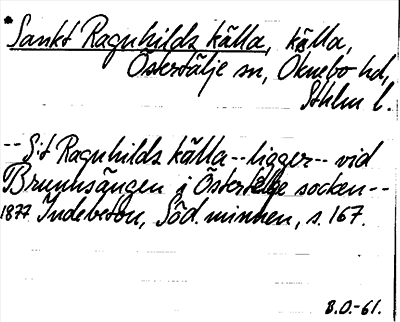 Sankt Ragnhilds källa, källa,
Östertälje sn, Öknebo hd,
Sthlm l.
-- S:t Ragnhilds källa -- ligger -- vid
Brunnsängen i Östertelge socken --
1877 Indebetou, Söd. minnen, s. 167.
B.O.-61.